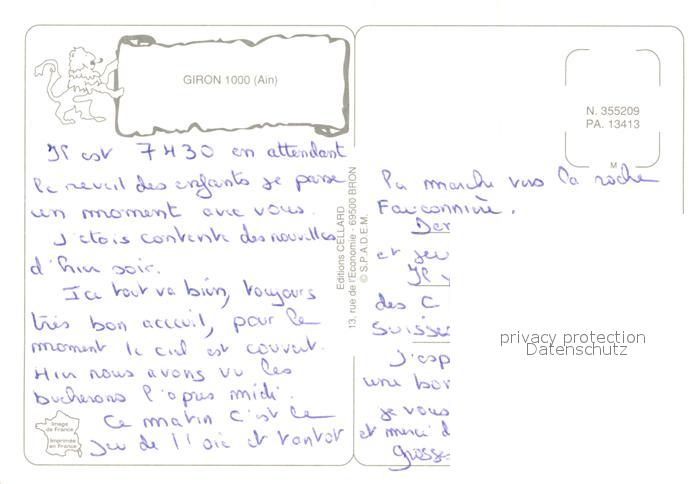 GIRON 1000 (Ain)
Il est 7H30 en attendant
le reveil des enfants je passe
un moment avec vous.
J'etais contente des nouvelles
d'hier soir.
Ici tout va bien, toujours
très bon acceuil, pour le
moment le ciel est couvert.
Hier nous avons vu les
bucherons l'apres midi.
Ce matin c'est le
jeu de l'oie et tantot
Image
de France
Imprimée
en France
Editions CELLARD
13, rue de l'Economie - 69500 BRON
© S.P.A.D.E.M.
N. 355209
PA. 13413
M
la marche vers la roche
Fauconnière.
Der
et jeu
Il
des C
Suisse
J'esp
une bon
je vous
et merci d
Grosse
privacy protection
Datenschutz